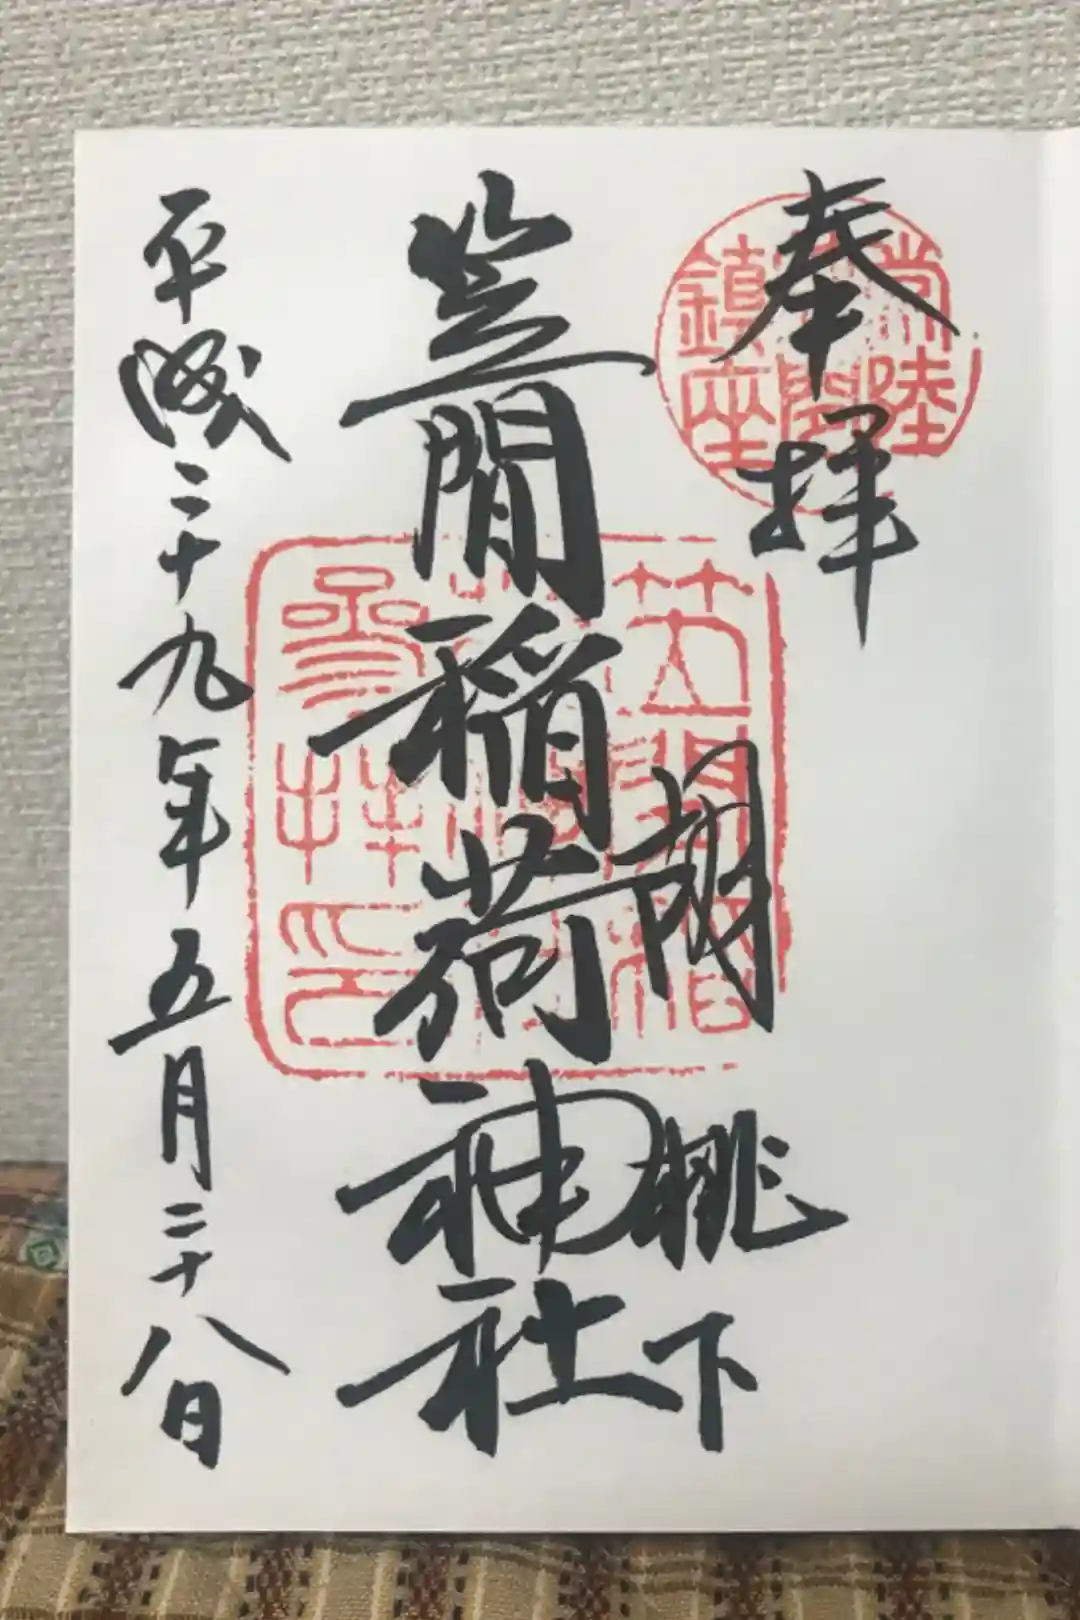 奉拝
常陸
間
鎮座
胡桃下
笠間稲荷神社
笠間稲
参拝印
平成二十九年五月二十八日